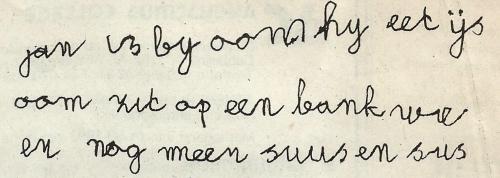 jan is by oom hy eet ijs
oom zit op een bank we
en nog meen suus en sus